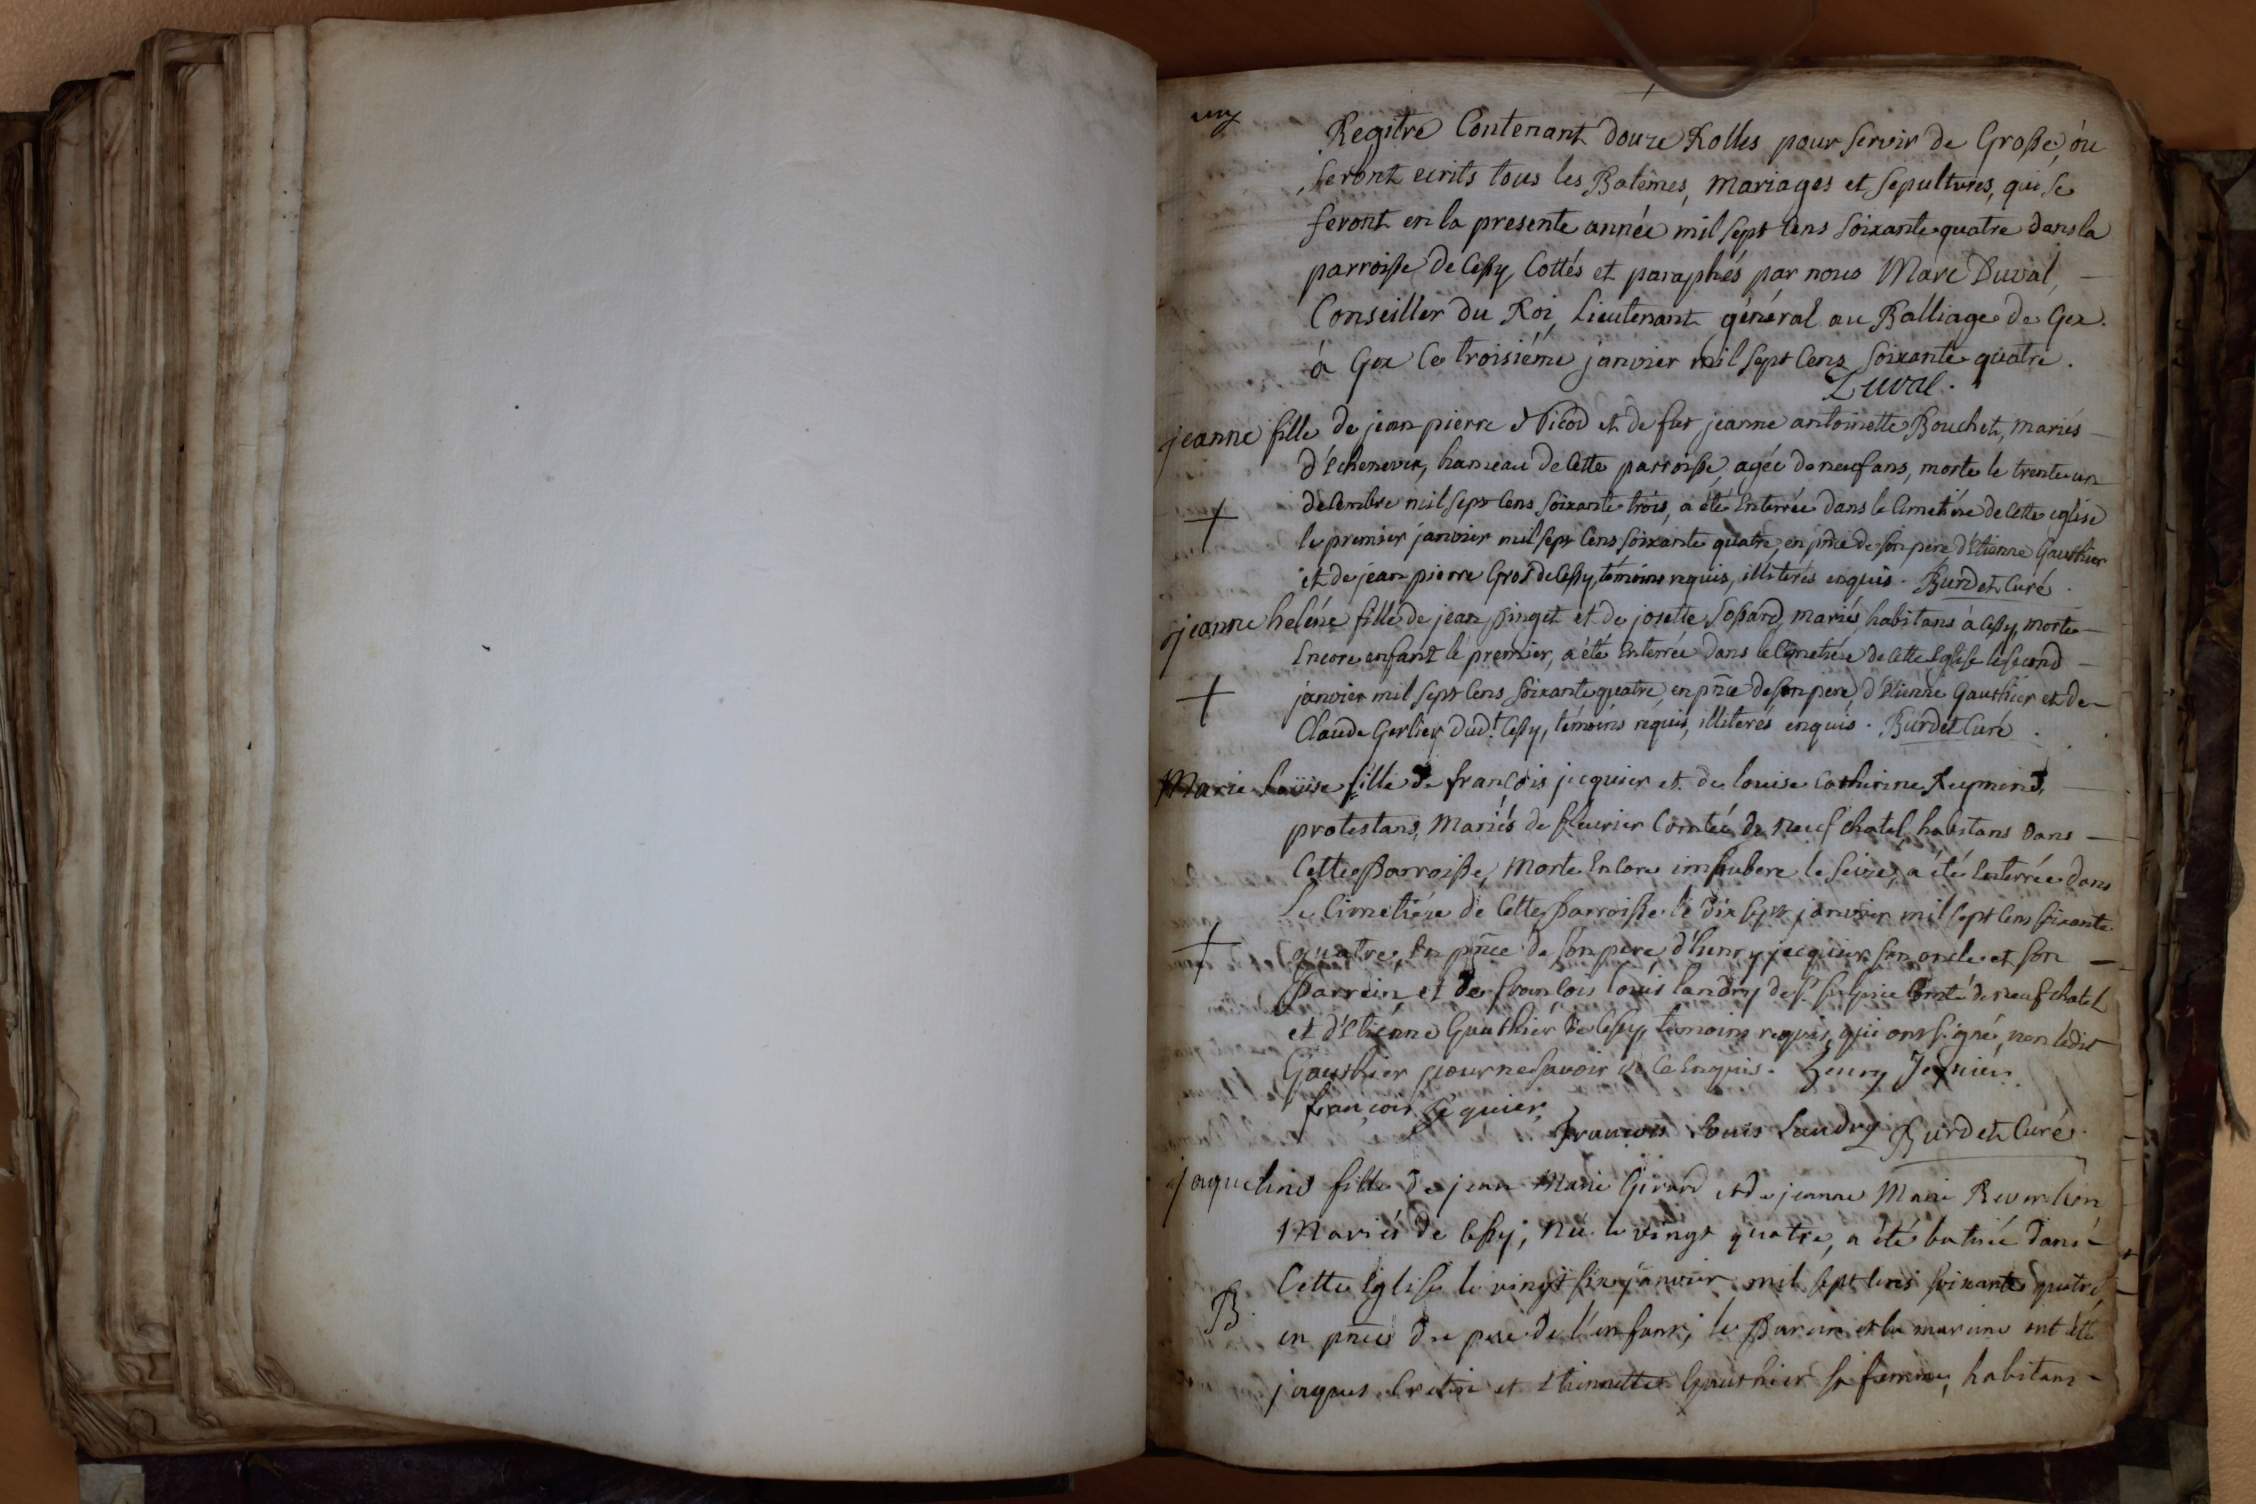 Regitre Contenant douze Rolles pour servir de Grosse, où
seront ecrits tous les Batêmes, mariages et sepultures, qui se
feront en la presente année mil sept Cens soixante quatre dans la
parroisse de Cessy, Cottés et paraphés par nous Marc Duval,
Conseiller du Roi, Lieutenant général au Balliage de Gex.
à Gex Ce troisiéme janvier mil sept Cens soixante quatre.
Duval.
jeanne fille de jean pierre Nicod et de fue jeanne antoinette Bouchet, mariés
d'Echenevex, hameau de Cette parroisse, agée de neuf ans, morte le trente un
decembre mil sept Cens soixante trois, a été Enterrée dans le Cimetiére de Cette eglise
le premier janvier mil sept Cens soixante quatre, en pñce de son pere d'Etienne Gauthier
et de jean pierre Gros de Cessy, témoins requis, illiterés enquis. Burdet Curé.
jeanne heléne fille de jean pinget et de josette sossard, mariés, habitans à Cessy, morte
Encore enfant le premier, a été Enterrée dans le Cimetiére de Cette Eglise le second
janvier mil sept Cens soixante quatre, en pñce de son pere, d'Etienne Gauthier et de
Claude Gerlier dud.t Cessy, témoins requis, illiterés enquis. Burdet Curé.
Marie Loüise fille de françois jequier et de louise Catherine Reymond,
protestans, Mariés de fleurier Comté de neufchatel, habitans dans
Cette Parroisse, Morte Encore impubere le seize, a été Enterrée dans
Le Cimetiére de Cette parroisse le dix sept janvier mil sept Cens soixante
quatre, En pñce de son pere, d'henry jequier son oncle et son
parrein et de françois louis landry de S.t sulpice Comté de neufchatel
et d'Etienne Gauthier de Cessy, temoins requis, qui ont signé, non ledit
Gauthier pour ne savoir de Ce Enquis. Henry Jequier
françois Jéquier
françois Louis Landry Burdet Curé.
jaqueline fille de jean Marie Girard et de jeanne Marie Reverchon
Mariés de Cessy, Née le vingt quatre, a été batisée dans
Cette Eglise le vingt six janvier mil sept Cens soixante quatre,
B.
en pñce du pere de l'enfant; le Parein et la mareine ont été
jaques Cretin et Etiennette Gauthier sa femme, habitans